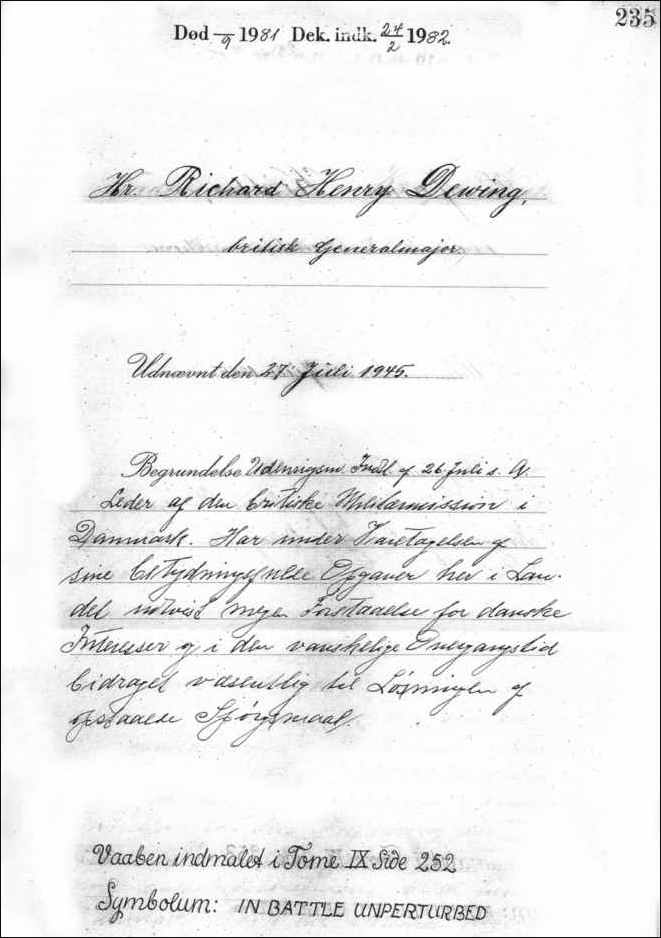 235
Død /9 1981 Dek. indk. 24/2 1982.
Hr. Richard Henry Dewing,
britisk Generalmajor.
Udnævnt den 27' Juli 1945.
Begrundelse Udenrigsm. Indst. af 26 Juli s. A.
Leder af den britiske Militærmission i
Danmark. Har under Varetagelsen af
sine betydningsfulde Opgaver her i Lan-
det udvist megen Forstaaelse for danske
Interesser og i den vanskelige Overgangstid
bidraget væsentlig til Løsningen af
opstaaede Spørgsmaal.
Vaaben indmalet i Tome IX Side 252
Symbolum: IN BATTLE UNPERTURBED